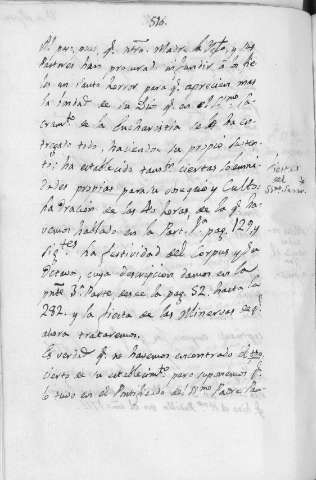 516.
ntrã. Madre la Ygla, y sus
Pastores han procurado infundir á los fie
les un santo horror para qe. aprecien mas
la bondad de su Dios qe. en el Smo. Sa
cramto. de la Eucharistia se les ha en
tregado todo, haciendose su propio susten
to; ha establecido tambn. ciertas solemni
dades propias para su obsequio y Culto:
la Oracion de las 40 horas, de la qe. ha
vemos hablado en la Part. 1.a pag. 129 y
sigtes. la festividad del Corpus y su
Octava, cuya descripcion damos en la
pnte 3.a Parte desde la pag. 52. hasta la
282. y la fiesta de las Minervas de qe.
ahora trataremos.
Es verdad qe. no havemos encontrado el
cierto de su establecimto. pero suponemos qe.
lo tuvo en el Pontificado del Padre
Fiestas
del
Smo. Sacram.